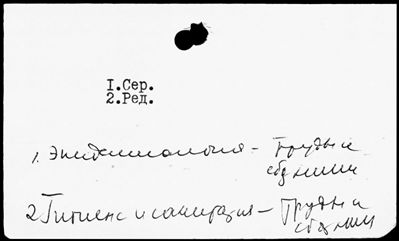 I.Сер.
2.Ред.
1. Эпидемиология – Труды и
сборники
2 Гигиена и санитария – Труды и
сборники